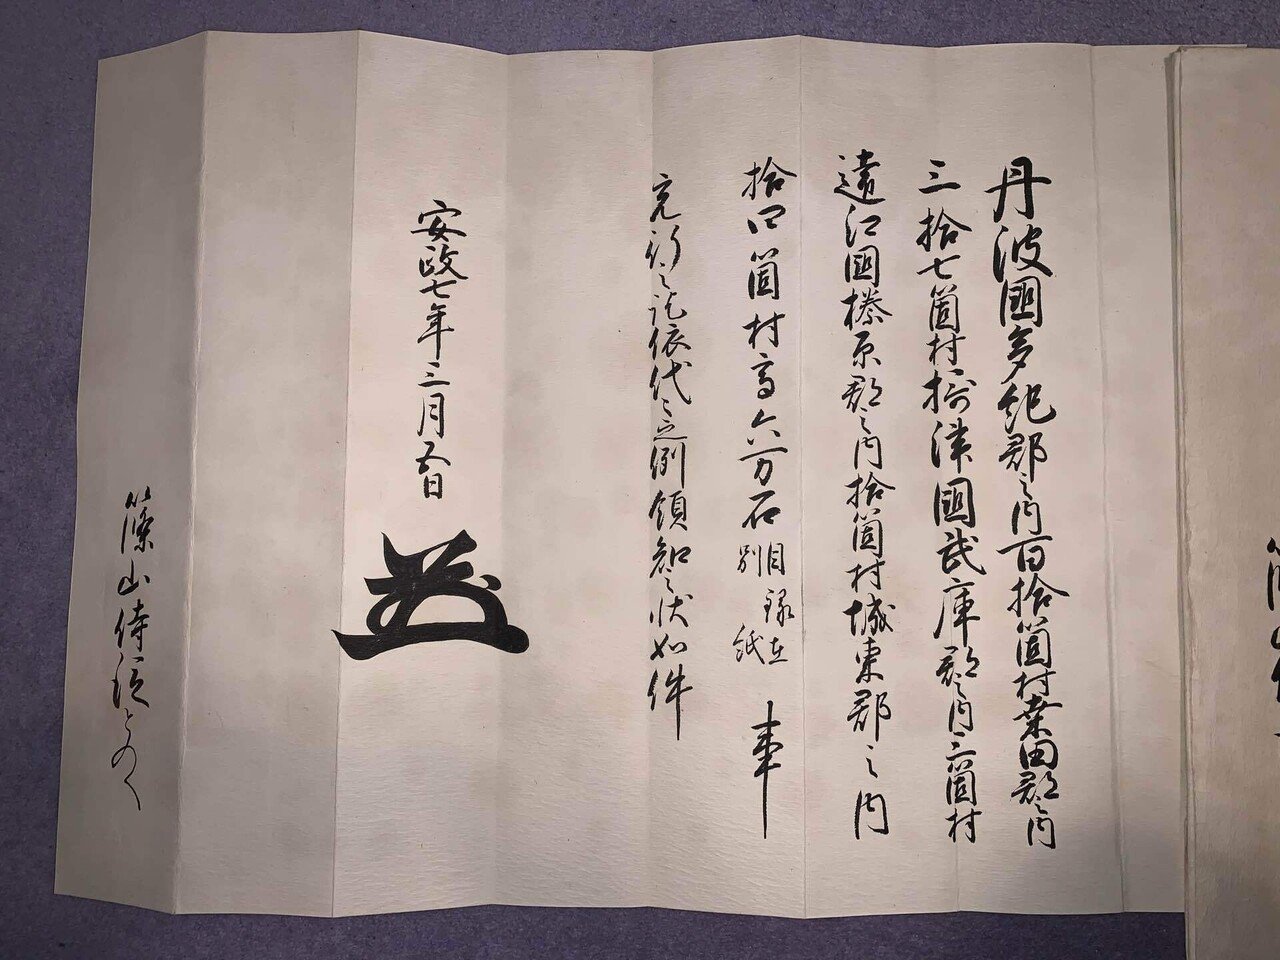 丹波國多紀郡之内百拾箇村桒田郡之内
三拾七箇村摂津國武庫郡之内三箇村
遠江國榛原郡之内拾箇村城東郡之内
拾四箇村高六万石目録在別紙事
充行之訖依代々之例領知之状如件
安政七年三月五日
篠山侍従とのへ
篠山侍